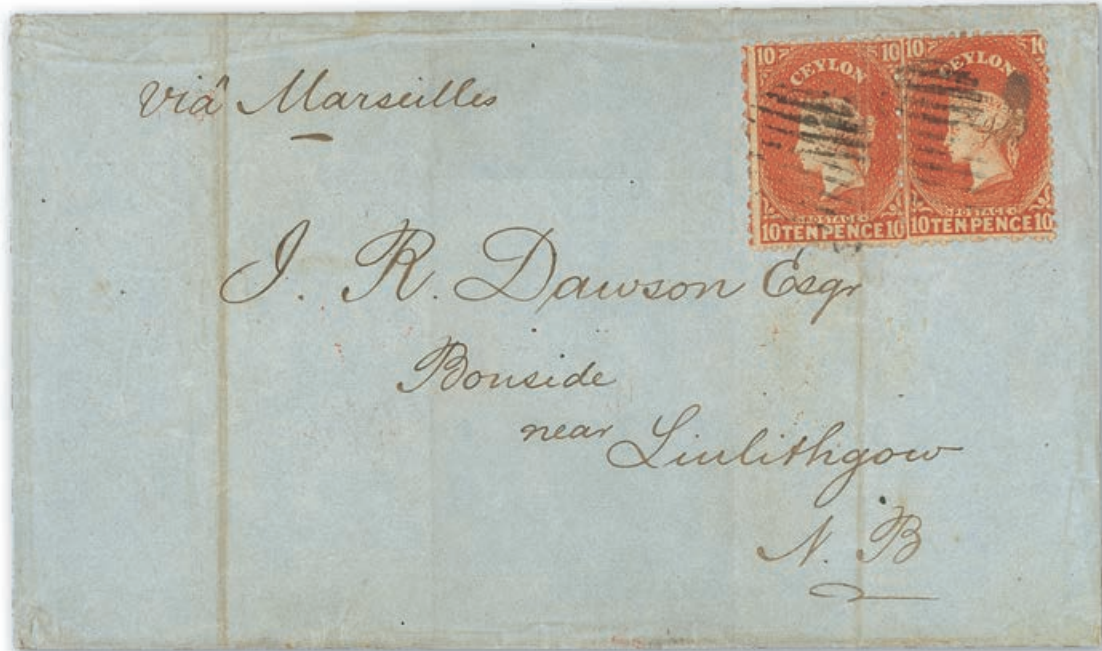 viâ Marseilles
10 10
CEYLON
POSTAGE
10 TEN PENCE 10
10 10
CEYLON
POSTAGE
10 TEN PENCE 10
J. R. Dawson Esqr
Bonside
near Linlithgow
N. B